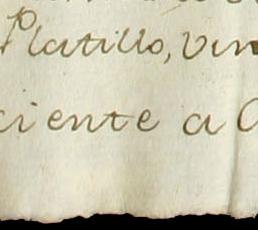 Platillo, vin
ciente a